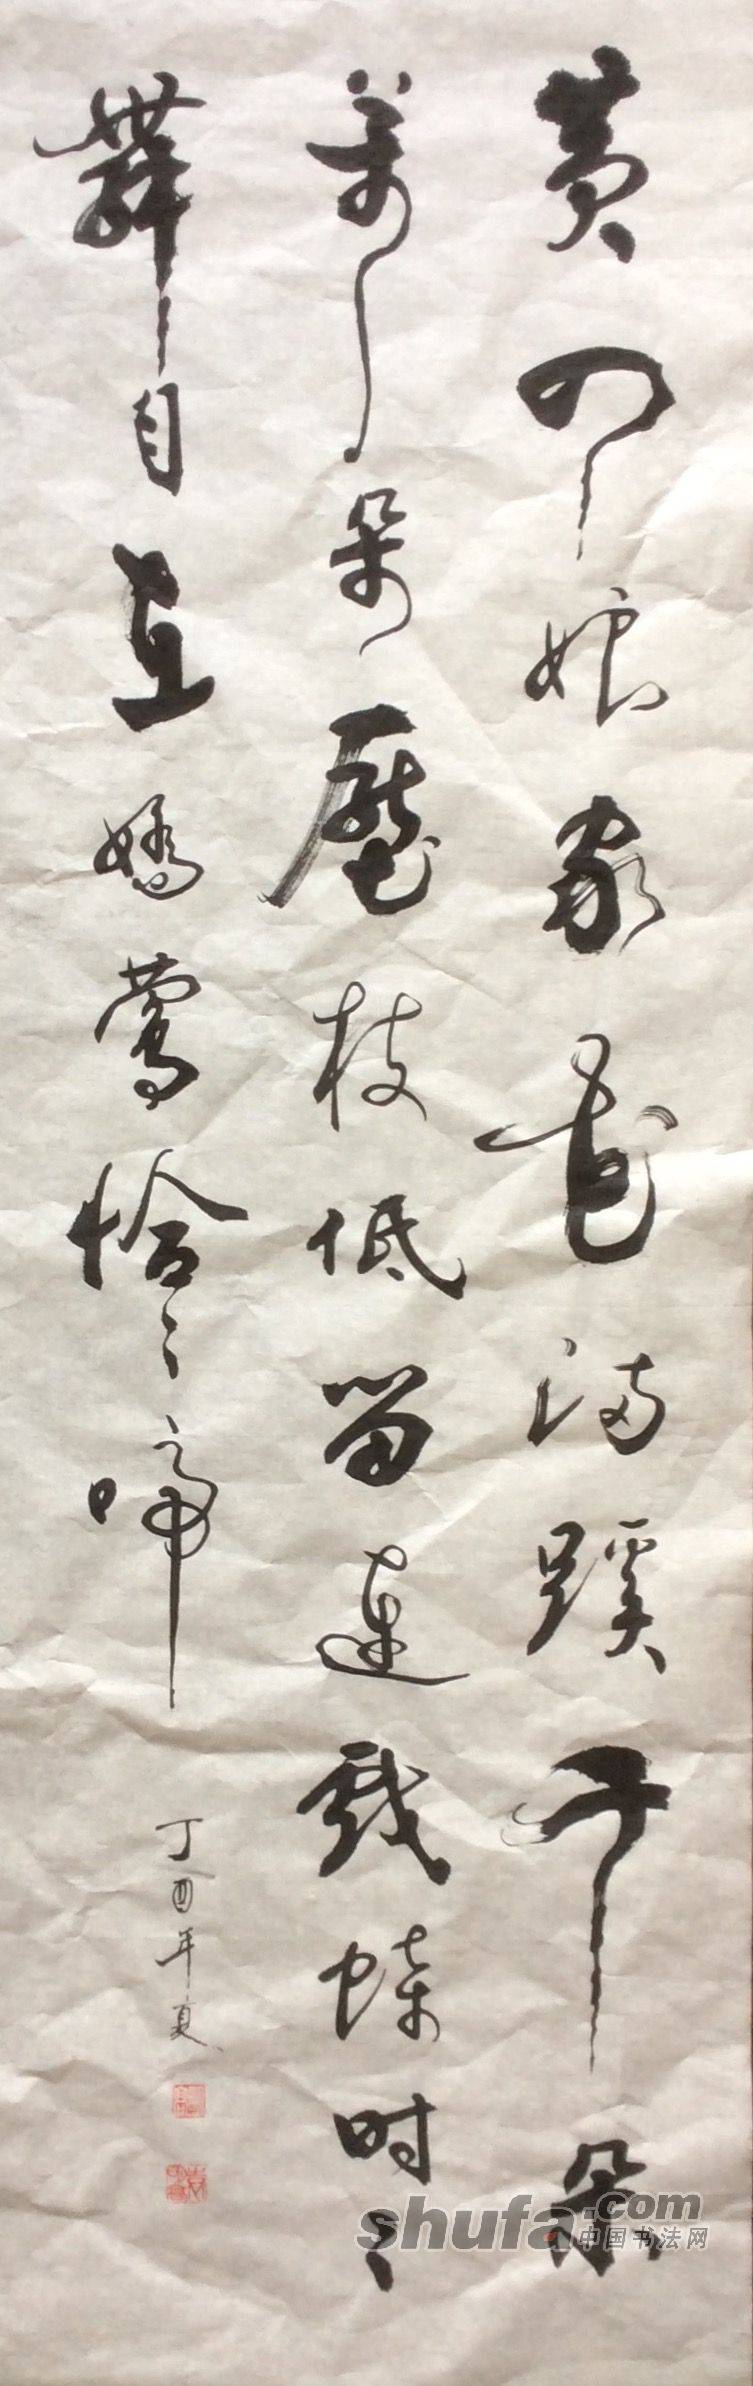 黄四娘家花满蹊千朵
萬朵壓枝低留連戲蝶时时
舞自在嬌鶯恰恰啼
丁酉年夏
shufa.com
中国书法网